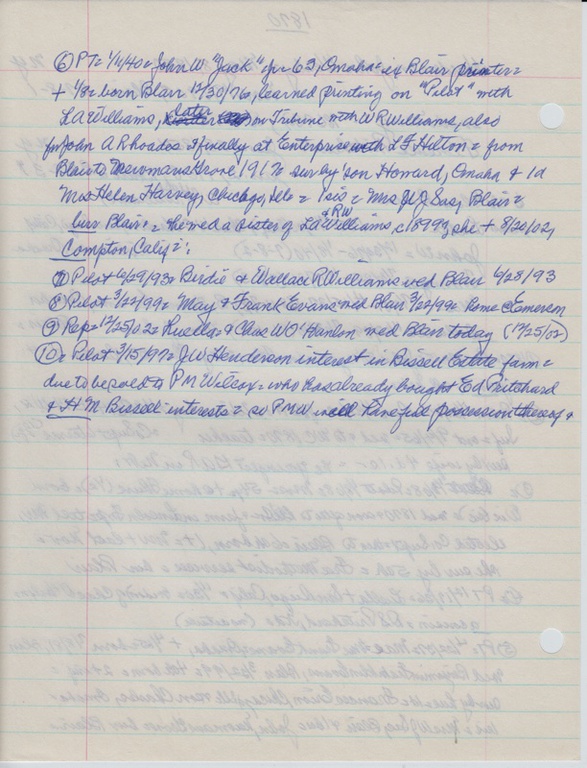 1870
⑥ PT = 1/11/40 = John W "Jack" for 63, Omaha = ex Blair printer =
+ 1/8 = born Blair 12/30/76, learned printing on "Pilot" with
LA Williams, later on Tribune with WR Williams, also
for John A Rhoades & finally at Enterprise with LF Hilton = from
Blair to Newmans Grove 1917 = sur by son Howard, Omaha & 1d
Mrs Helen Harvey, Chicago, Ills = 1 sis = Mrs JJ Sas, Blair =
bur Blair = he wed a sister of LA & RW Williams, c1899 & she + 8/20/02,
Compton, Calif =
⑦ Pilot 6/29/93 = Birdie & Wallace R Williams wed Blair 6/28/93
⑧ Pilot 3/22/99 = May & Frank Evans wed Blair 3/22/99 = Home c Emerson
⑨ Rep = 12/25/02 = Luella & Chas W O'Hanlon wed Blair today (12/25/02)
⑩ = Pilot 3/15/97 = JW Henderson interest in Bissell Estate farm =
due to be sold to PM Wilcox = who has already bought Ed Pritchard
& HM Bissell interests = so PMW will have full possession thereof =